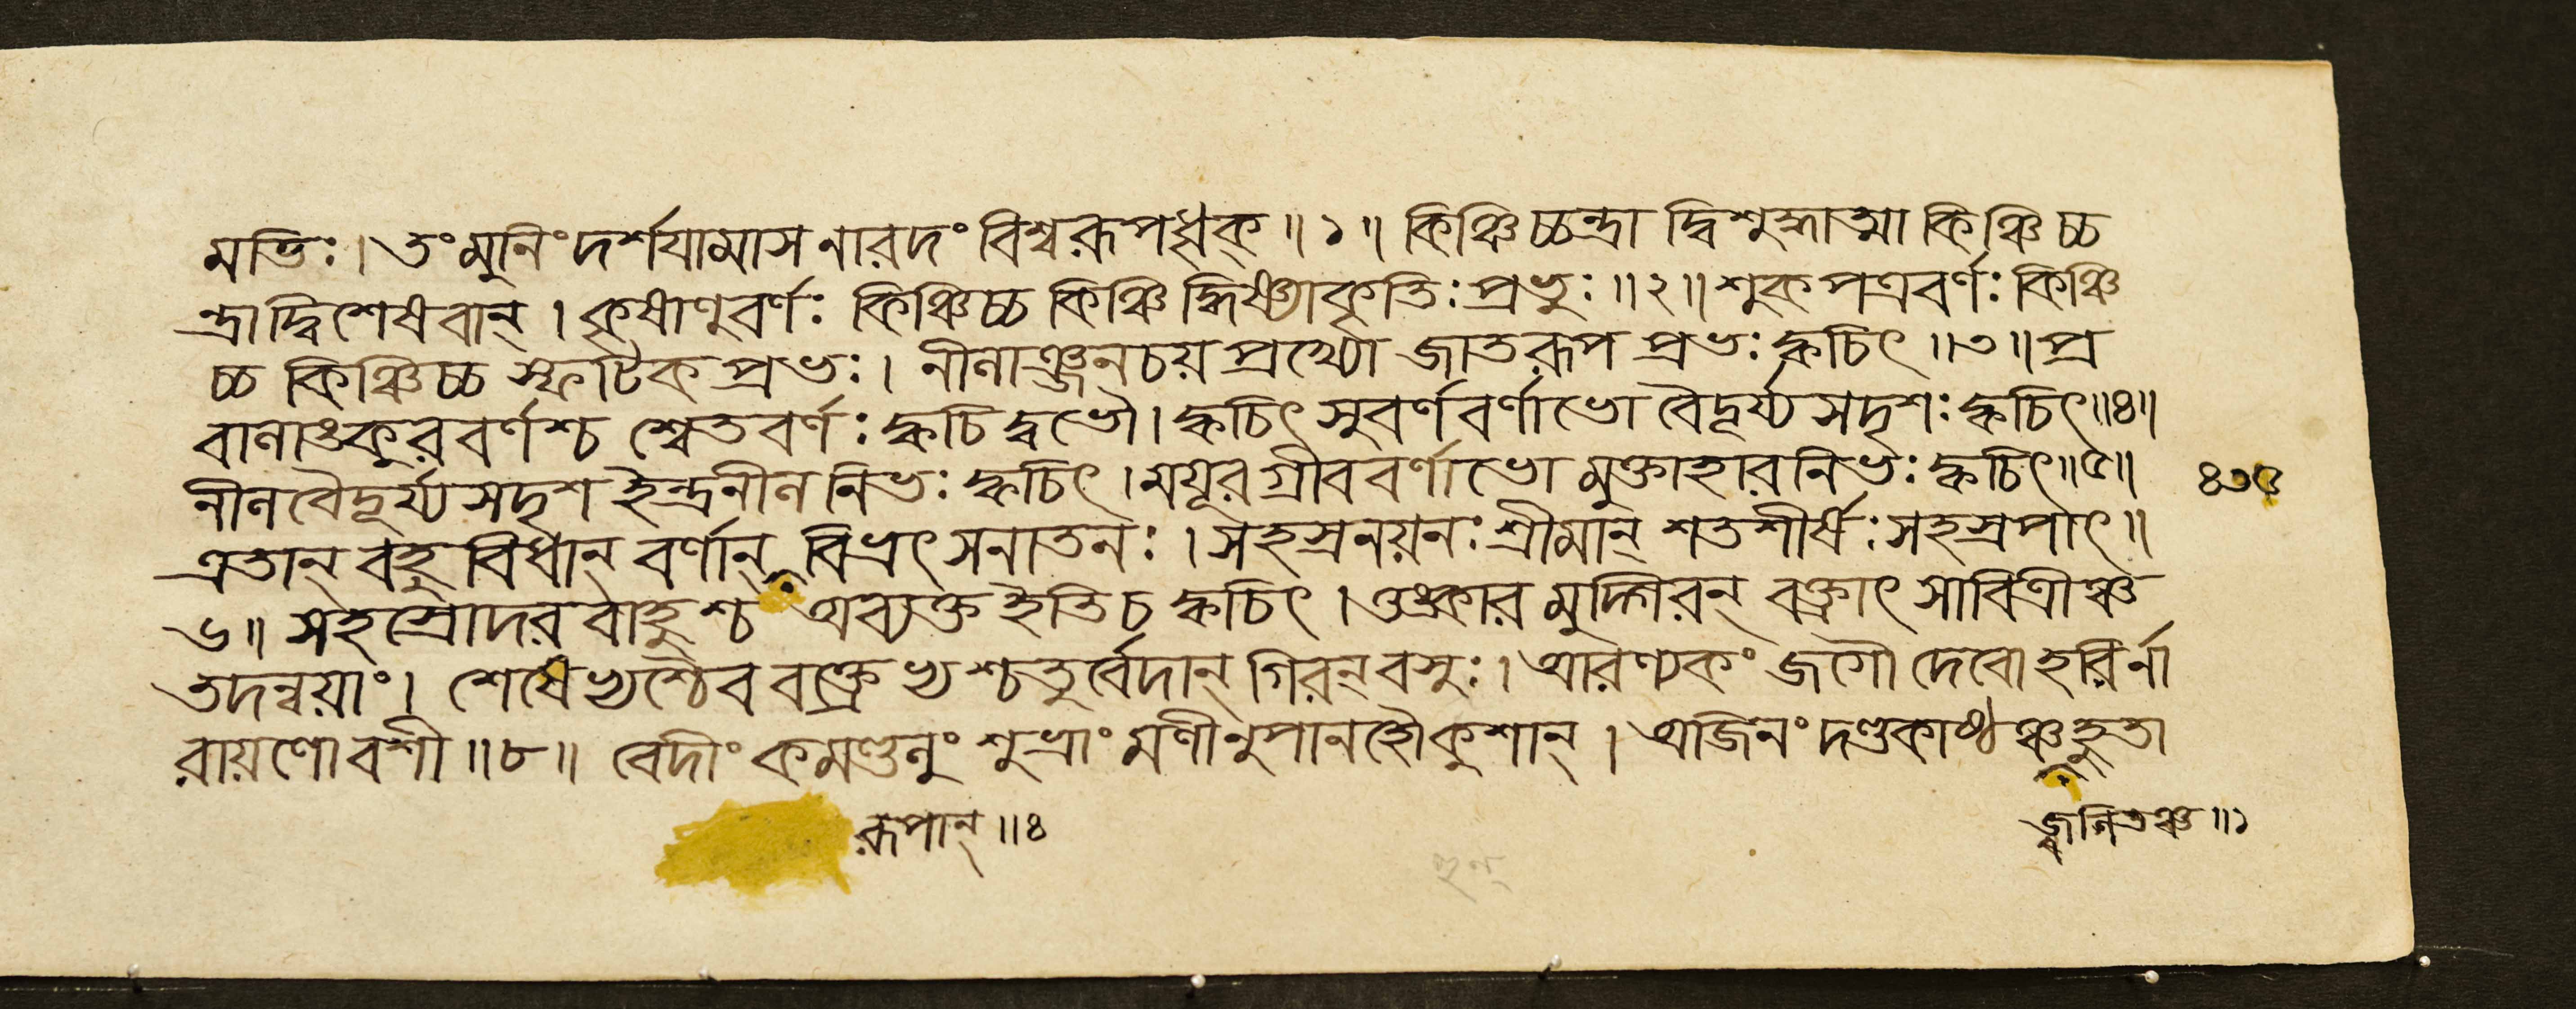 মতিঃ। তং মুনিং দর্শযামাস নারদং বিশ্বরূপধৃক্॥১॥ কিঞ্চিচ্চন্দ্রা দ্বিশুদ্ধাত্মা কিঞ্চিচ্চ
ন্দ্রাদ্বিশেষবান্। কৃষাণুবর্ণঃ কিঞ্চিচ্চ কিঞ্চি দ্ধিষ্ণ্যাকৃতিঃ প্রভুঃ॥২॥ শুকপত্রবর্ণঃ কিঞ্চি
চ্চ কিঞ্চিচ্চ স্ফটিক প্রভঃ। নীলাঞ্জনচয় প্রখ্যো জাতরূপ প্রভঃ ক্বচিৎ॥৩॥ প্র
বালাঙ্কুরবর্ণশ্চ শ্বেতবর্ণঃ ক্বচি দ্বভৌ। ক্বচিৎ সুবর্ণবর্ণাভো বৈদূর্য্য সদৃশঃ ক্বচিৎ॥৪॥
নীলবৈদূর্য্যসদৃশ ইন্দ্রনীল নিভঃ ক্বচিৎ। ময়ূরগ্রীববর্ণাভো মুক্তাহারনিভঃ ক্বচিৎ॥৫॥
৪৩৫
এতান্ বহুবিধান্ বর্ণান্ বিভ্রৎ সনাতনঃ। সহস্রনয়নঃ শ্রীমান্ শতশীর্ষঃ সহস্রপাৎ॥
৬॥ সহস্রোদরবাহুশ্চ অব্যক্ত ইতি চ ক্বচিৎ। ওঙ্কার মুদ্গিরন্ বক্ত্রাৎ সাবিত্রীঞ্চ
তদন্বয়াং। শেষেভ্যশ্চৈব বক্ত্রেভ্যশ্চতুর্বেদান্ গিরন্ বসুঃ। আরণ্যকং জগৌ দেবো হরির্না
রায়ণো বশী॥৮॥ বেদীং কমণ্ডলুং শুভ্রাং মণীনুপানহৌকুশান্। অজিনং দণ্ডকাষ্ঠঞ্চ হুতা
রূপান্॥৪
জ্বলিতঞ্চ॥১